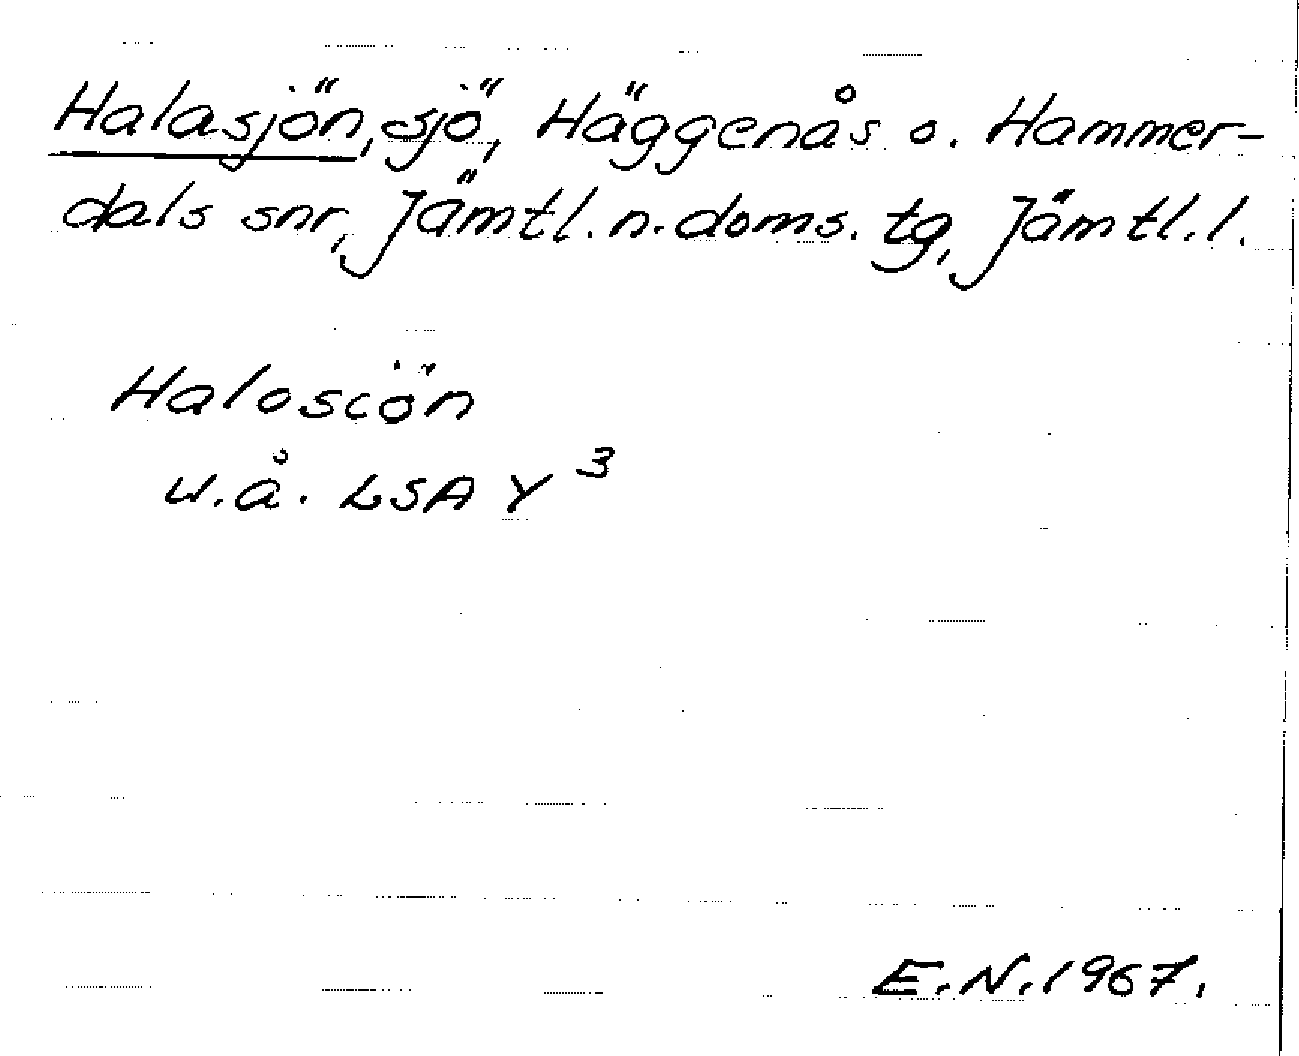 Halasjön, sjö, Häggenås o. Hammer-
dals snr, Jämtl. n. doms. tg, Jämtl. l.
Haloscön
u.å. LSA Y 3
E.N. 1967.